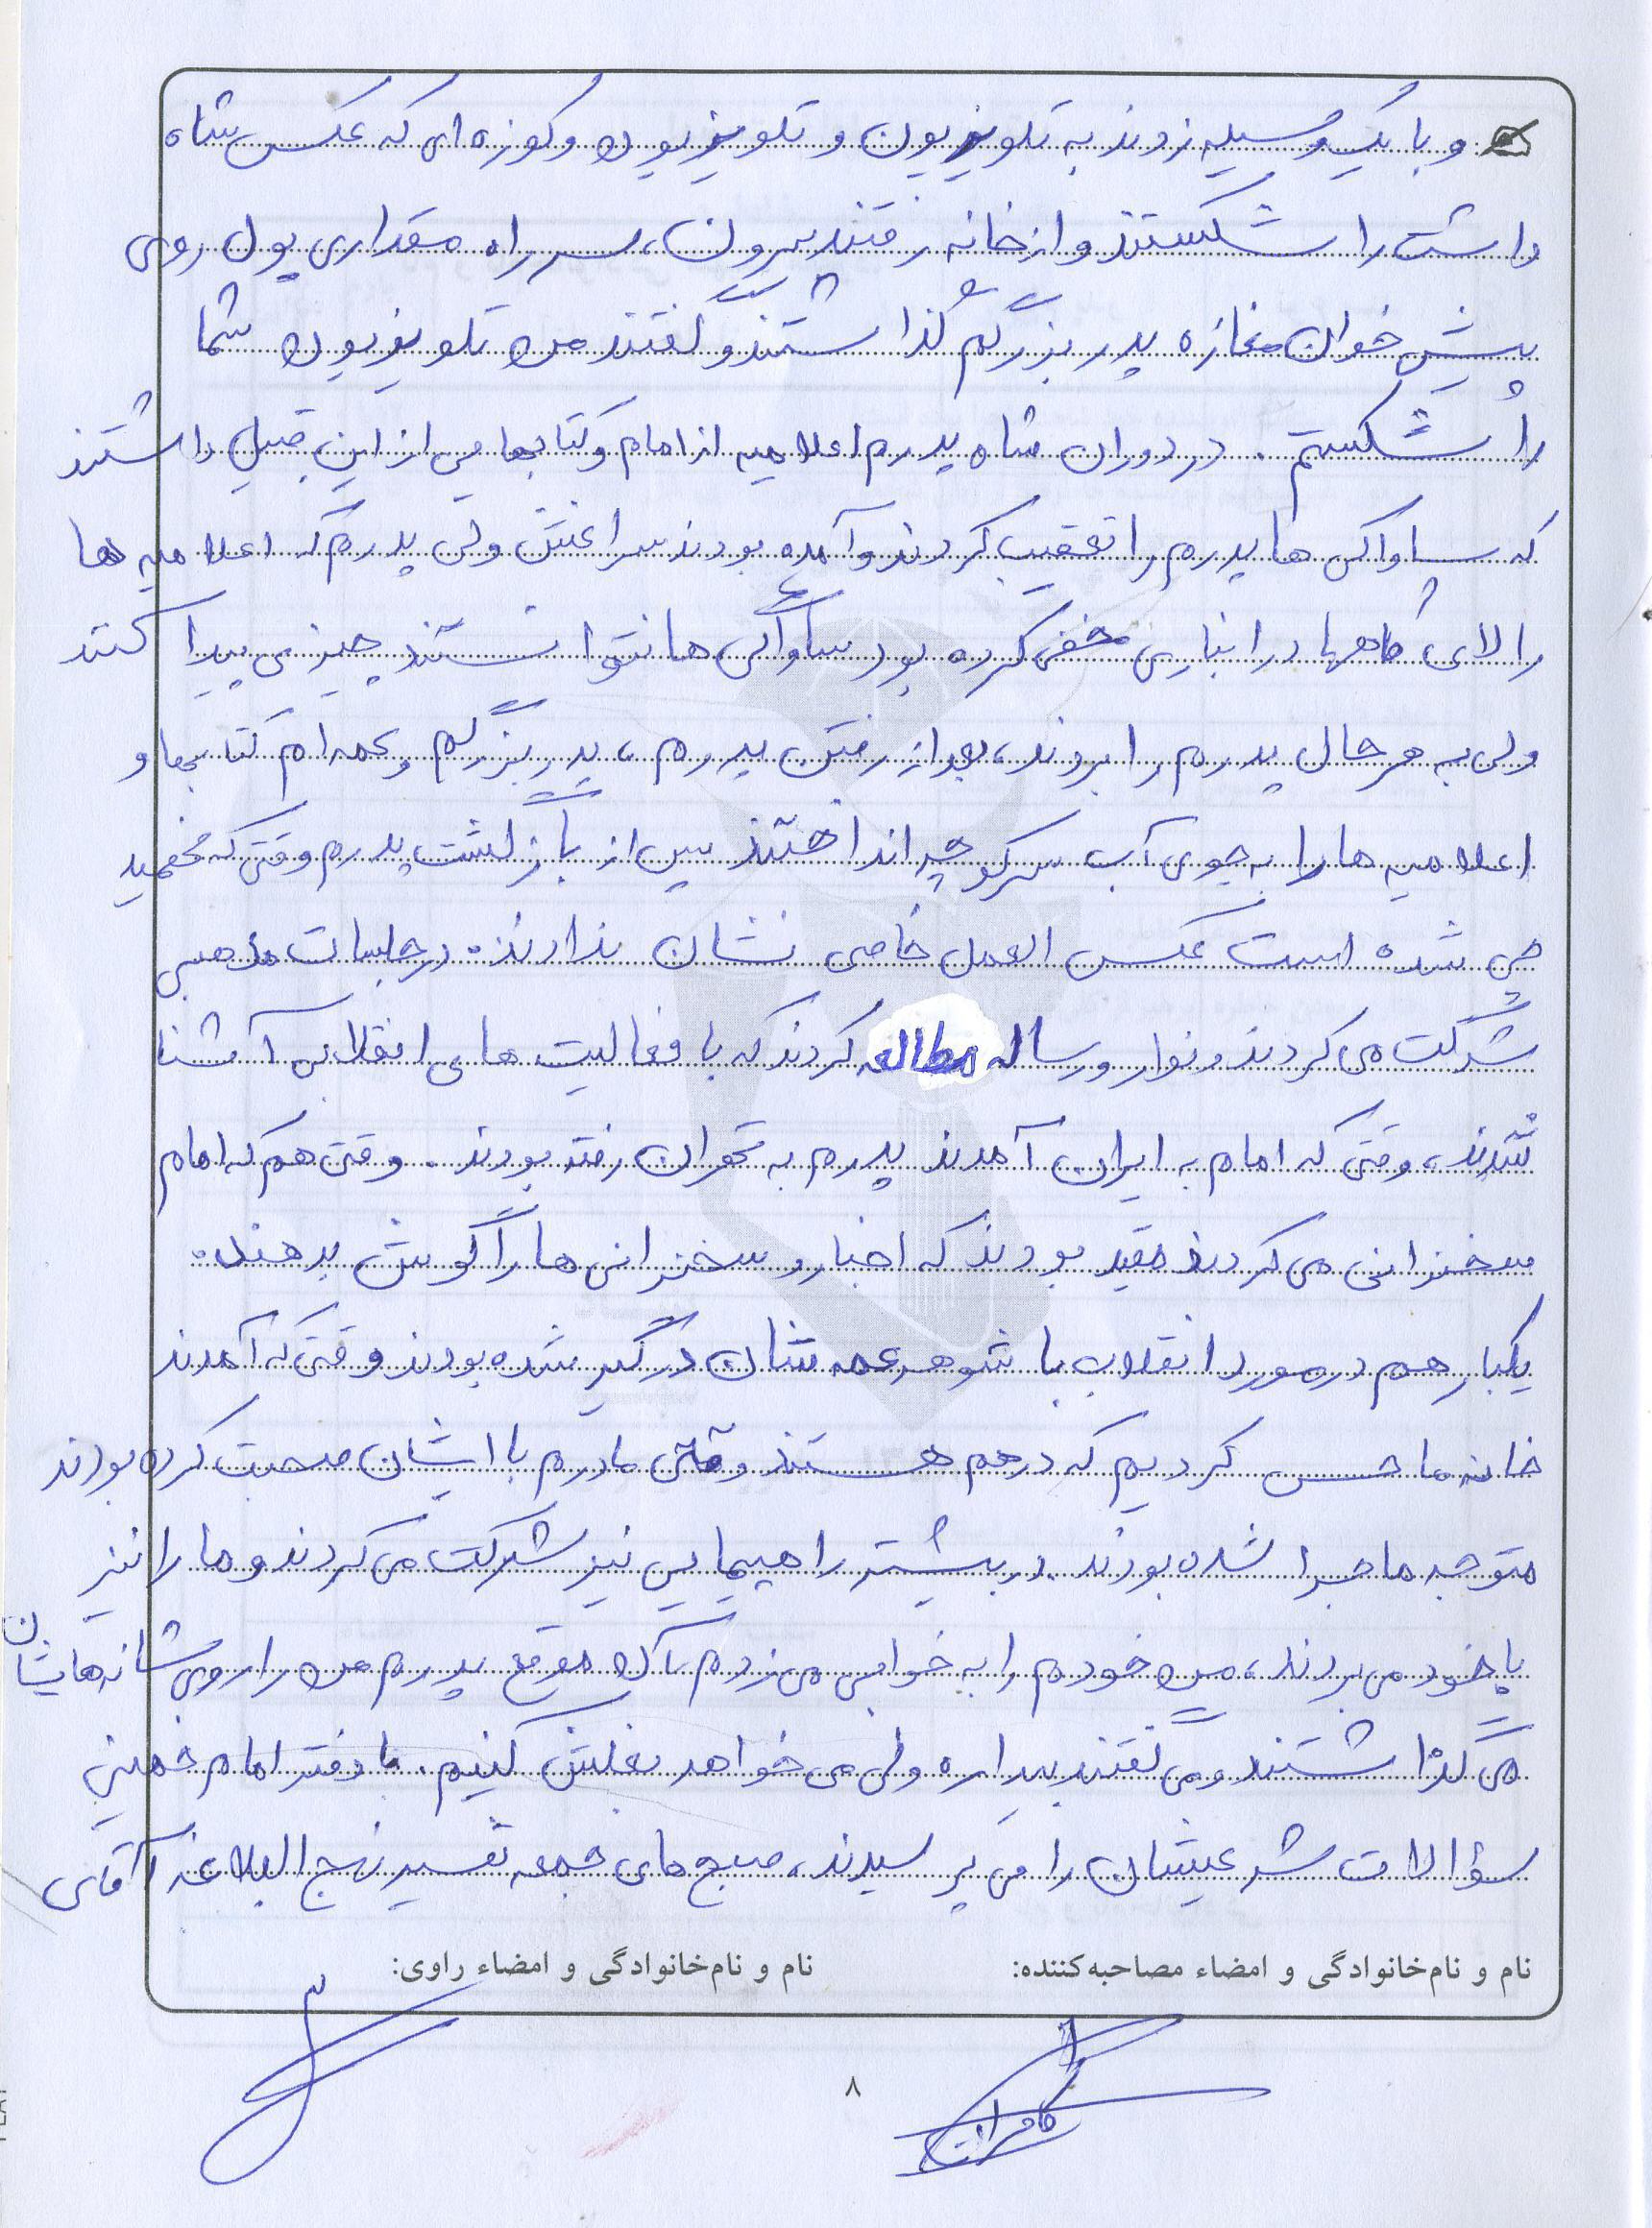 و با یک وسیله زدند به تلویزیون و تلویزیون و کوزه ای که عکس شاه
داشت را شکستند و از خانه رفتند بیرون، سر راه مقداری پول روی
پیش خوان مغازه پدر بزرگم گذاشتند و گفتند من تلویزیون شما
را شکستم. در دوران شاه پدرم اعلامیه از امام و کتابهایی از این قبیل داشتند
که ساواکی ها پدرم را تعقیب کردند و آمده بودند سراغش ولی پدرم که اعلامیه ها
را لای کاهها در انباری مخفی کرده بود ساواکی ها نتوانستند چیزی پیدا کنند
ولی به هر حال پدرم را بردند، بعد از رفتن پدرم، پدر بزرگم و عمه ام کتابها و
اعلامیه ها را به جوی آب سر کوچه انداختند پس از بازگشت پدرم وقتی که فهمید
چی شده است عکس العمل خاصی نشان ندادند. در جلسات مذهبی
شرکت می کردند و نوار و رساله مطالعه کردند که با فعالیت های انقلابی آشنا
شدند، وقتی که امام به ایران آمدند پدرم به تهران رفته بودند. وقتی هم که امام
سخنرانی می کردند مقید بودند که اخبار و سخنرانی ها را گوش بدهند.
یکبار هم در مورد انقلاب با شوهر عمه شان درگیر شده بودند وقتی که آمدند
خانه ما حس کردیم که درهم هستند وقتی مادرم با ایشان صحبت کرده بودند
متوجه ماجرا شده بودند. در بیشتر راهپیمایی نیز شرکت می کردند و ما را نیز
با خود می بردند، من خودم را به خوابی می زدم آن موقع پدرم من را روی شانه هایشان
می گذاشتند و می گفتند بیداره ولی می خواهد بغلش کنیم. با دفتر امام خمینی
سؤالات شرعیشان را می پرسیدند، صبح های جمعه تفسیر نهج البلاغه آقای
نام و نام‌خانوادگی و امضاء مصاحبه‌کننده: نام و نام‌خانوادگی و امضاء راوی:
۸